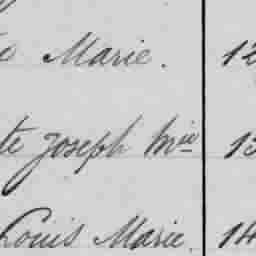 Marie. 12
te Joseph Mie 13
Louis Marie. 14